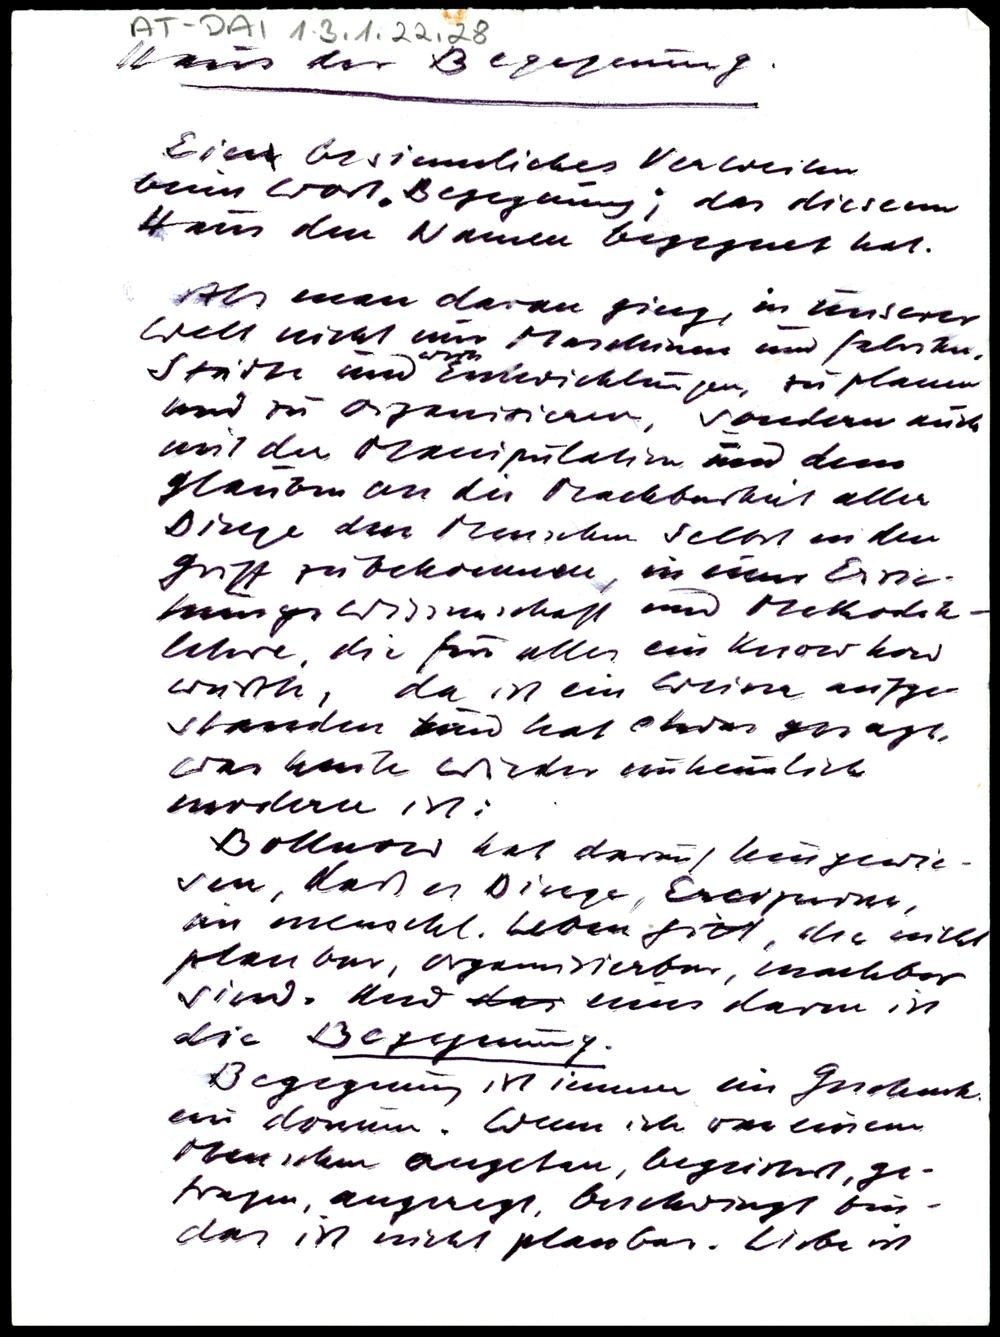 AT-DAI 1.3.1.22.28
Haus der Begegnung.
Ein besinnliches Verweilen
beim Wort "Begegnung", das diesem
Haus den Namen begegnet hat.
Als man daran ging, in unserer
Welt nicht nur Maschinen und Fabriken,
Städte und Entwicklungen, zu planen
und zu organisieren, sondern auch
mit der Manipulation und dem
Glauben an die Machbarkeit aller
Dinge den Menschen selbst in den
Griff zu bekommen, in einer Erzie-
hungswissenschaft und Methodik-
lehre, die für alles ein Know how
wußte, da ist ein Weiser aufge-
standen und hat etwas gesagt,
was heute wieder unheimlich
modern ist:
Bollnow hat darauf hingewie-
sen, daß es Dinge, Ereignisse,
im menschl. Leben gibt, die nicht
planbar, organisierbar, machbar
sind. Und das eines davon ist
die Begegnung.
Begegnung ist immer ein Geschenk.
ein donum. Wenn ich von einem
Menschen angetan, begeistert, ge-
tragen, angeregt, beschwingt bin -
das ist nicht planbar. Liebe ist